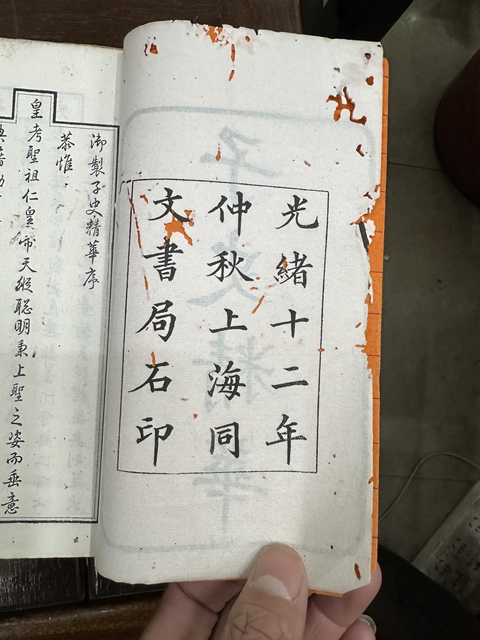 光緒十二年
仲秋上海同
文書局石印
御製子史精華序
恭惟
皇考聖祖仁皇帝天縱聰明秉上聖之姿而垂意